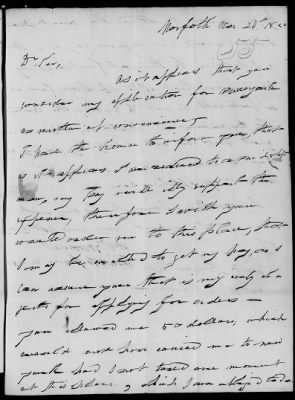 Norfolk Nov 24th
55
Dr Sir,
as it appears that you
consider my application for
as matter of convenience,
I have the honor to inform you, that
as it appears I was ordered to a
man, my pay will illy support the
expence, therefore I wish you
would order me to this place, that
I may be enabled to get my pay, as I
can assure you that is my only ob
ject for applying for orders —
you allowed me 50 dollars, which
would not have carried me to new
york had I not taxed one moment
at this place, which I was obliged to do